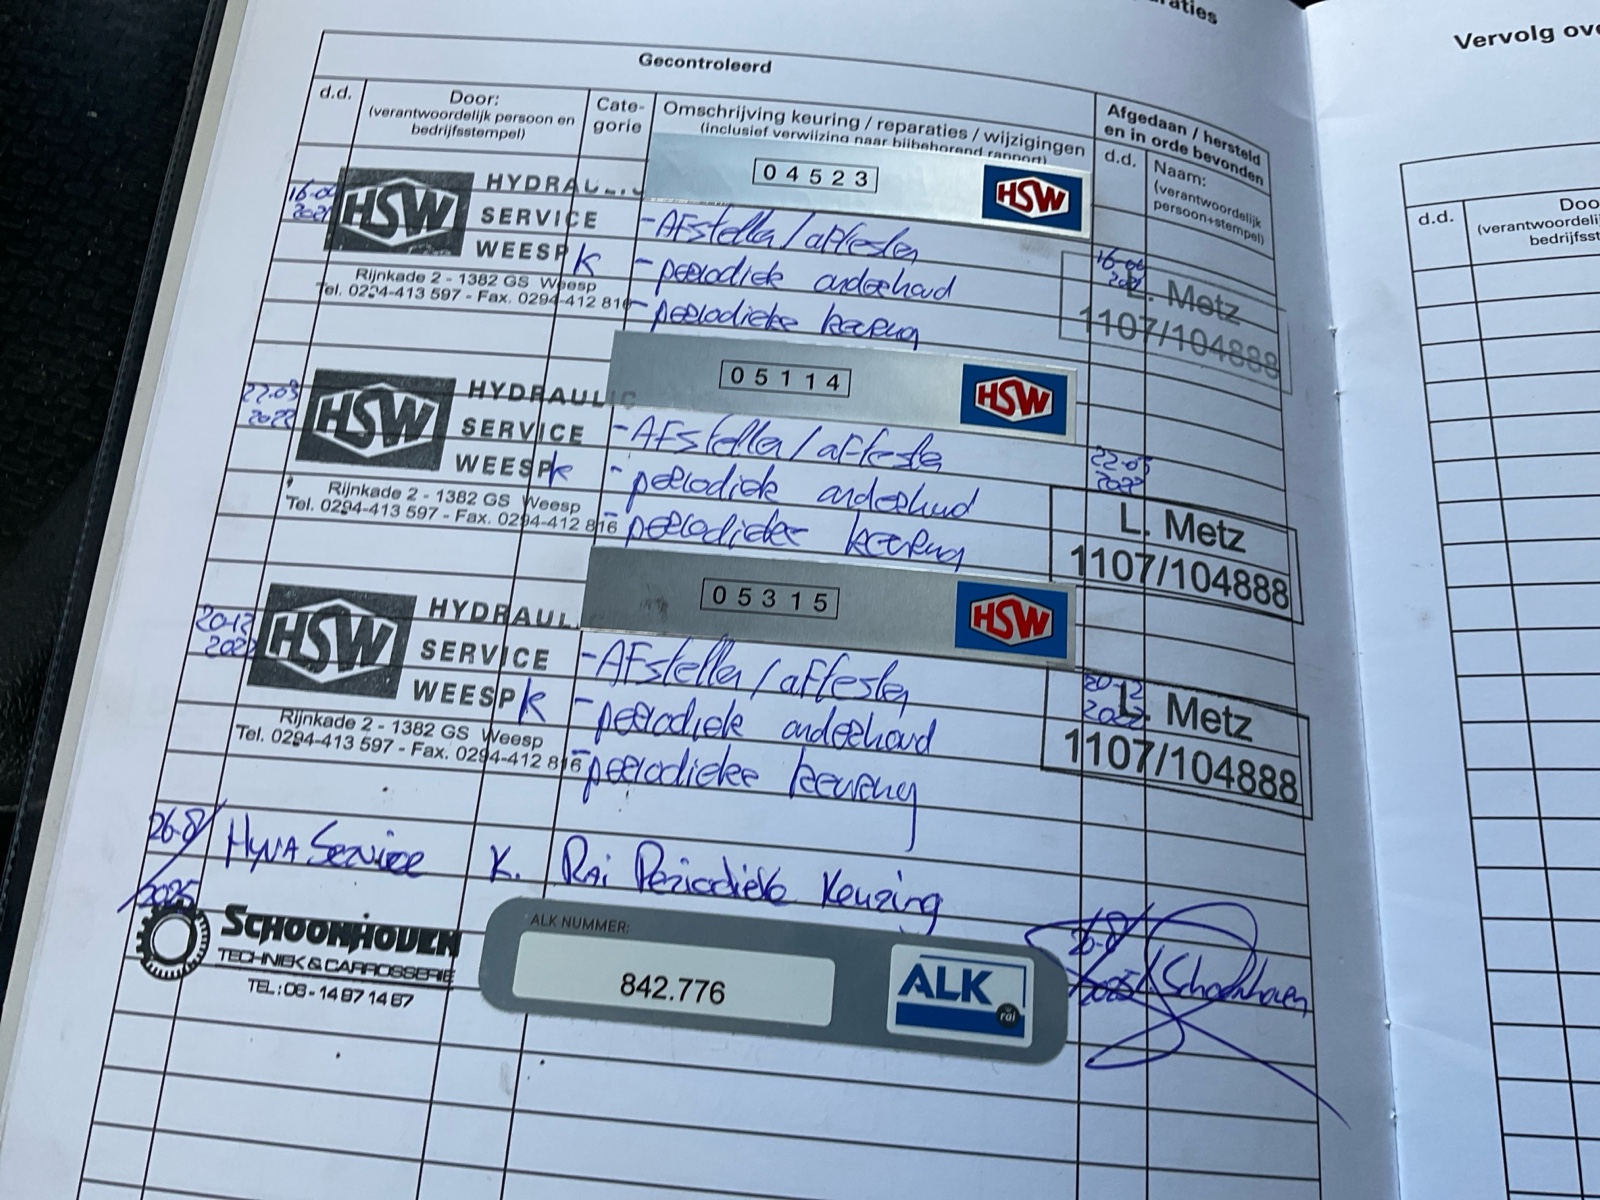 Gecontroleerd
d.d.
Door:
(verantwoordelijk persoon en
bedrijfsstempel)
Cate-
gorie
Omschrijving keuring / reparaties / wijzigingen
(inclusief verwijzing naar bijbehorend rapport)
Afgedaan / hersteld
en in orde bevonden
d.d.
Naam:
(verantwoordelijk
persoon+stempel)
04523
HSW
HSW
HYDRAULIC
SERVICE
WEESP
Rijnkade 2 - 1382 GS Weesp
Tel. 0294-413 597 - Fax. 0294-412 816
K
- AFstellen / aftesten
- periodiek onderhoud
- periodieke keuring
L. Metz
1107/104888
05114
HSW
22-03
2022
HSW
HYDRAULIC
SERVICE
WEESP
Rijnkade 2 - 1382 GS Weesp
Tel. 0294-413 597 - Fax. 0294-412 816
k
- AFstellen / aftesten
- periodiek onderhoud
- periodieke keuring
22-03
2022
L. Metz
1107/104888
05315
HSW
20-12
2022
HSW
HYDRAUL
SERVICE
WEESP
Rijnkade 2 - 1382 GS Weesp
Tel. 0294-413 597 - Fax. 0294-412 816
k
- AFstellen / aftesten
- periodiek onderhoud
- periodieke keuring
20-12
2022
L. Metz
1107/104888
26-8/
/2025
Hyva Service
K.
Rai Periodieke Keuring
SCHOONHOVEN
TECHNIEK & CARROSSERIE
TEL: 06 - 14 87 14 87
ALK NUMMER:
842.776
ALK
rai
26-8/
2025
Schoonhoven
Vervolg
d.d.